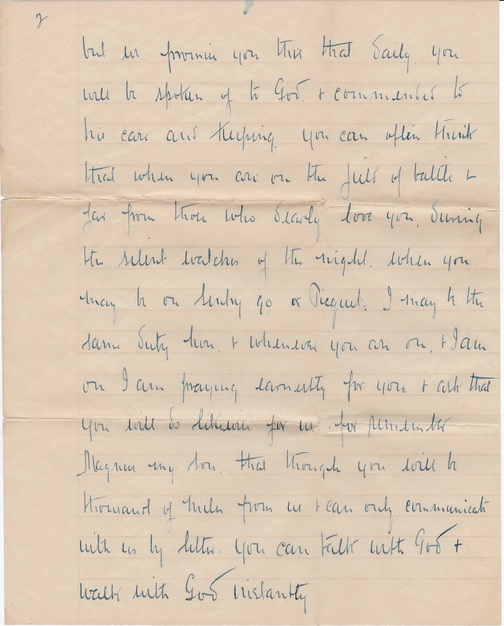 2
but we promise you this that daily you
will be spoken of to God & commended to
his care and keeping. you can often think
that when you are on the field of battle &
far from those who dearly love you, during
the silent watches of the night. when you
may be on Sentry go or Picquet. I may be the
same duty hour, & whenever you are on, & I am
on I am praying earnestly for you & ask that
you will do likewise for us for remember
Magnus my son. that though you will be
thousand of miles from us & can only communicate
with us by letter. you can talk with God &
walk with God instantly